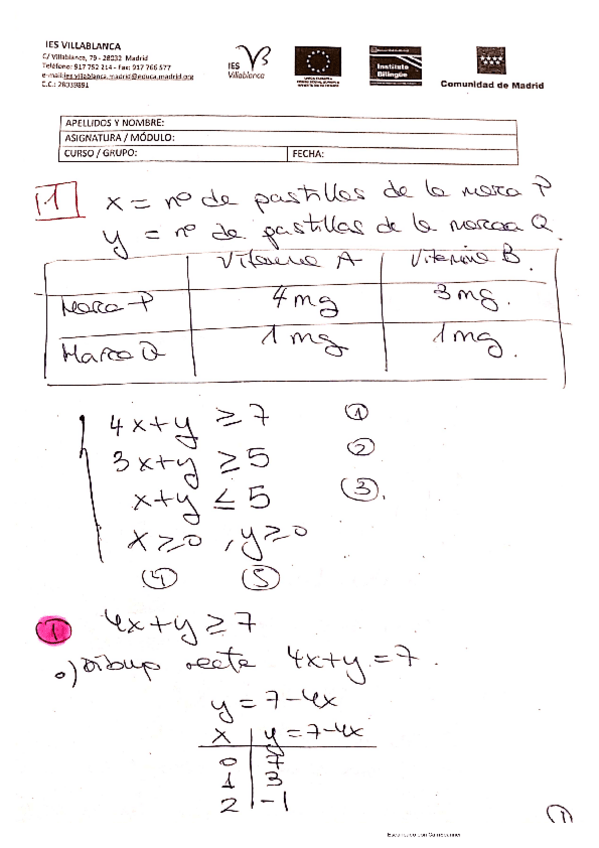 IES VILLABLANCA
C/ Villablanca, 79 - 28032 Madrid
Teléfono: 917 752 214 - Fax: 917 766 577
e-mail: ies.villablanca.madrid@educa.madrid.org
C.C.: 28039891
IES
Villablanca
Instituto
Bilingüe
Comunidad de Madrid
APELLIDOS Y NOMBRE:
ASIGNATURA / MÓDULO:
CURSO / GRUPO: FECHA:
1 x = nº de pastillas de la marca P
y = nº de pastillas de la marca Q.
Vitamina A Vitamina B.
Marca P 4 mg 3 mg.
Marca Q 1 mg 1 mg.
4x+y ≥ 7 ①
3x+y ≥ 5 ②
x+y ≤ 5 ③.
x ≥ 0, y ≥ 0
④ ⑤
① 4x+y ≥ 7
a) Dibujo recta 4x+y = 7.
y = 7-4x
x y = 7-4x
0 7
1 3
2 -1
①
Escaneado con CamScanner